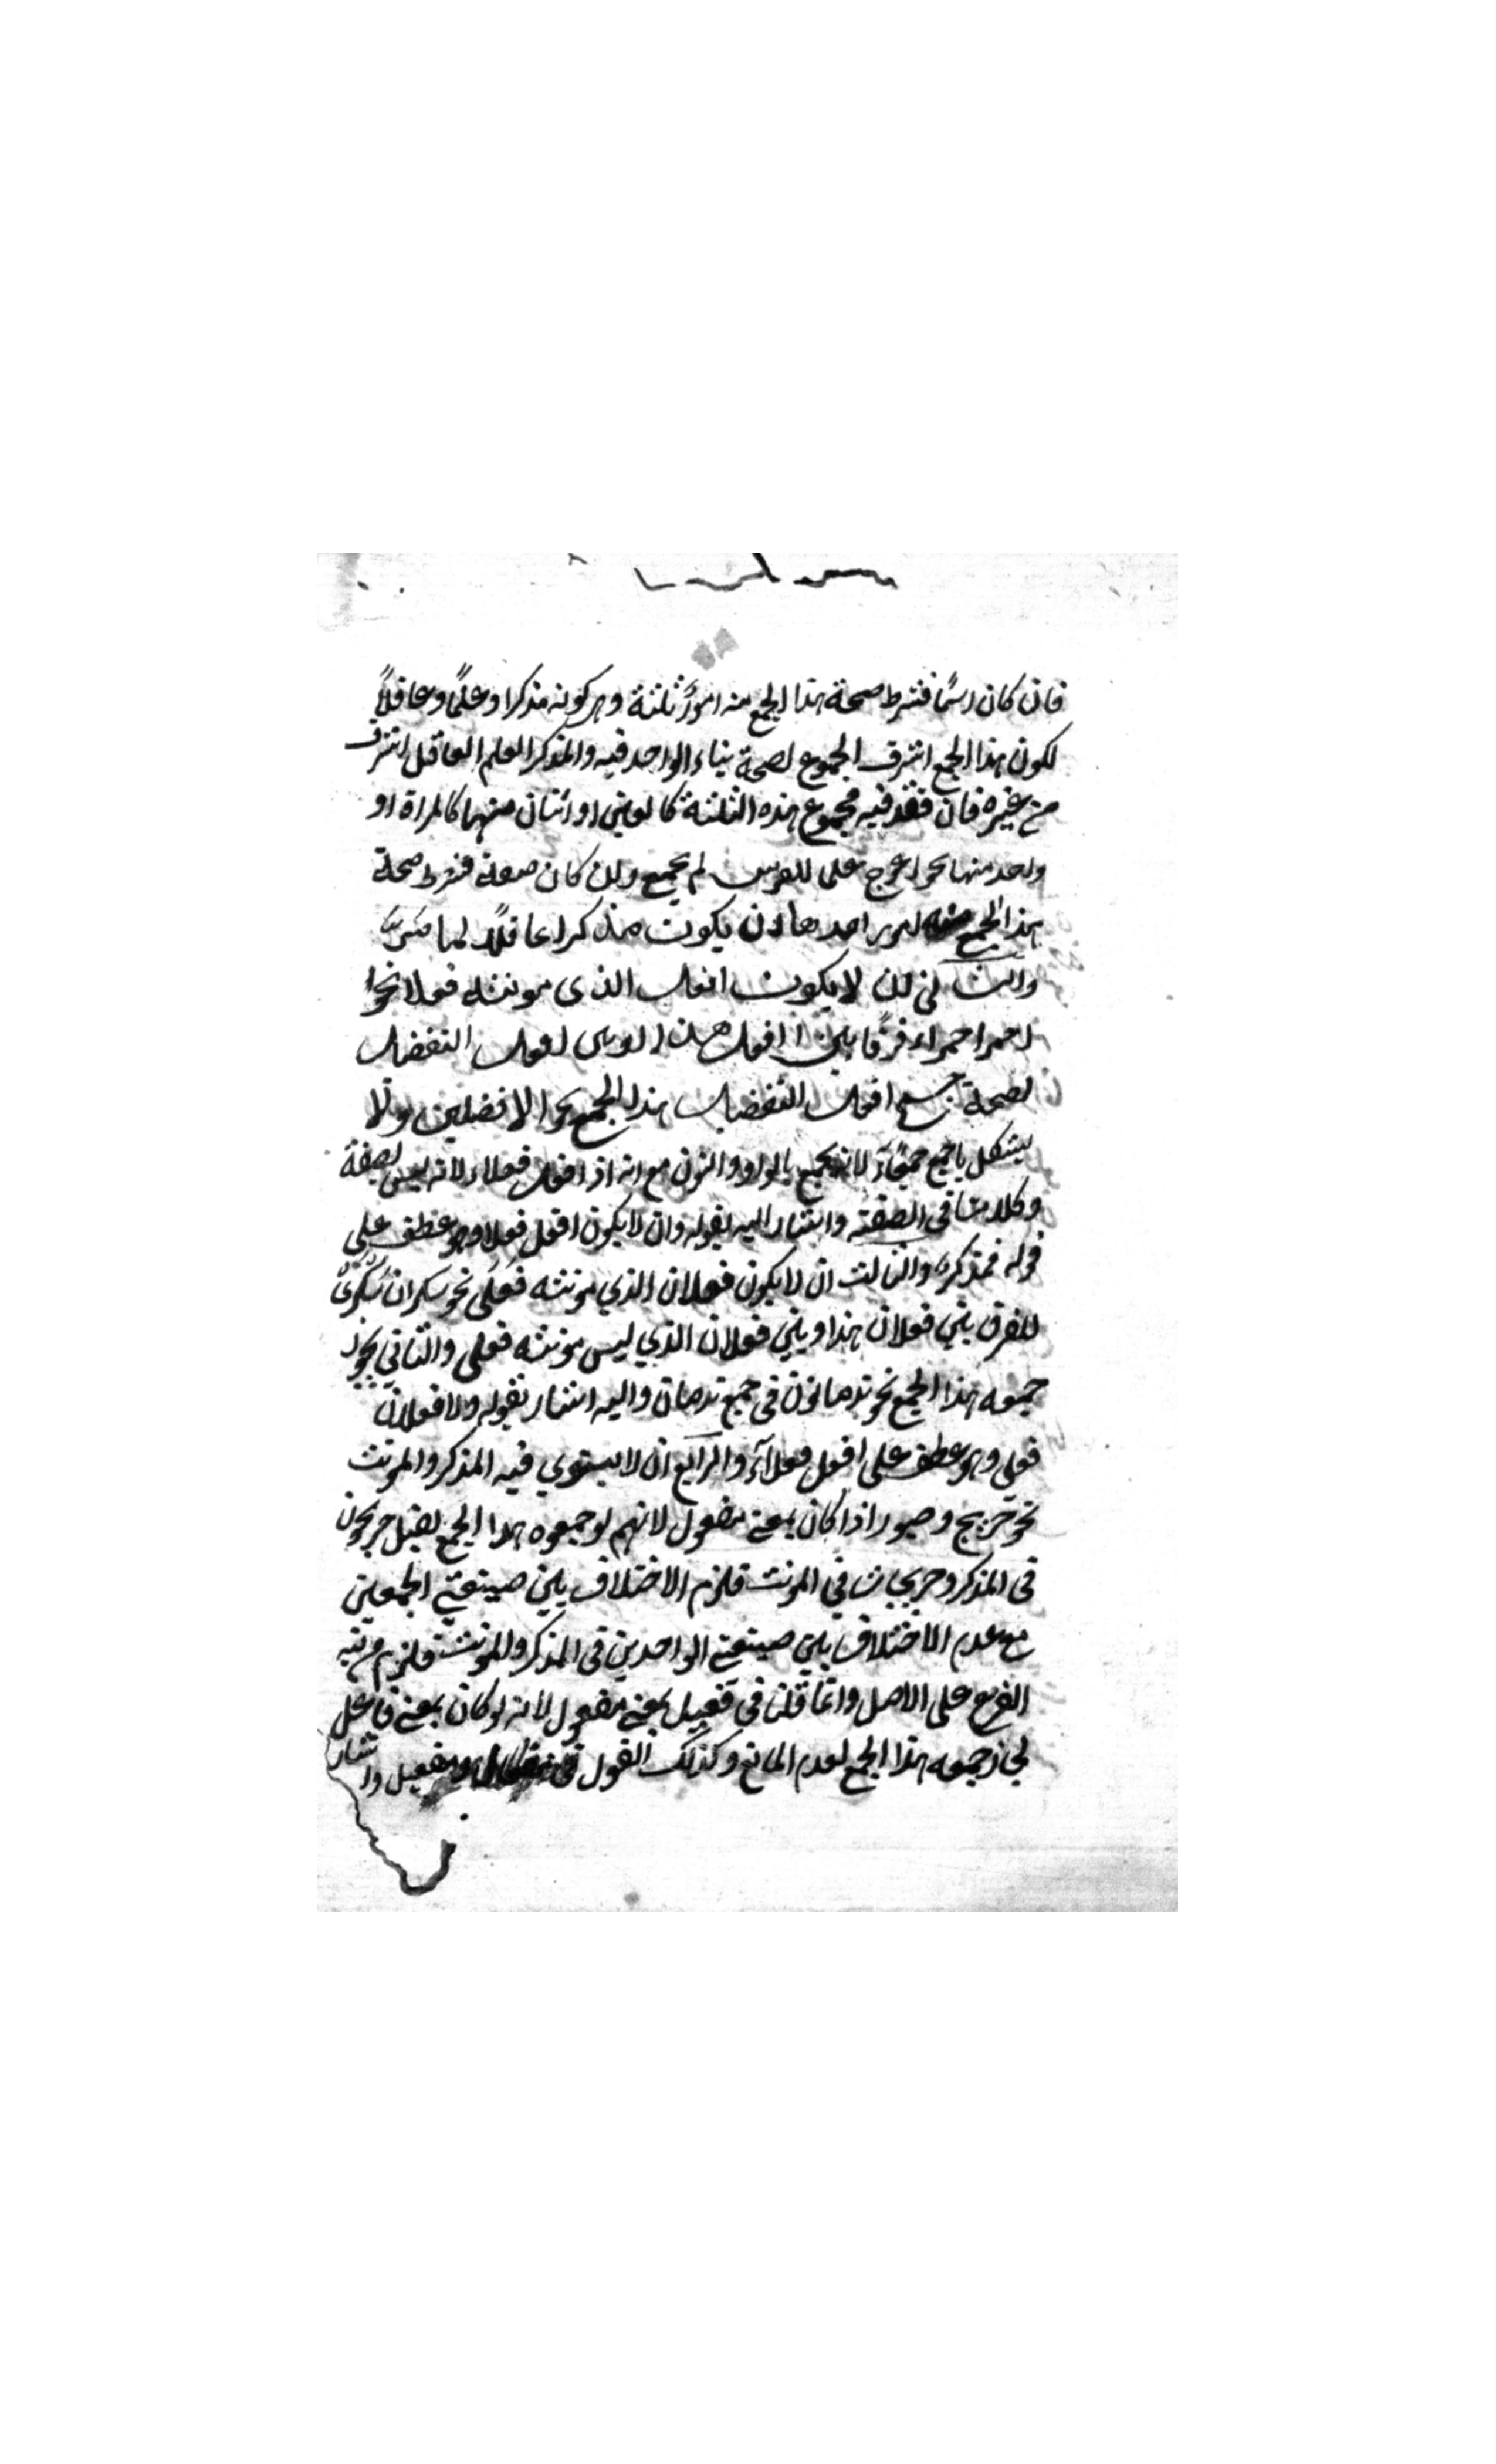 فان كان اسمًا فشرط صحة هذا الجمع منه امورٌ ثلثة وهى كونه مذكرا وعلمًا وعاقلاً
لكون هذا الجمع اشرف الجموع لصحة بناء الواحد فيه والمذكر العلم العاقل اشرف
من غيره فان فقد فيه مجموع هذه الثلثة كالعين او اثنان منهما كالمراة او
واحد منها نحو اعوج علما للفرس لم يجمع وان كان صفة فشرط صحة
هذا الجمع منه امور احدها ان يكون مذكرا عاقلاً لما مر
والثانى ان لا يكون افعل الذى مونثه فعلا نحو
احمر احمراء فرقًا بين افعل هذا وبين افعل التفضيل
لصحة جمع افعل التفضيل هذا الجمع نحو الافضلين ولا
يشكل باجمع جمعآء لانه يجمع بالواو والنون مع انه اذ افعل فعلاء لانه ليس بصفة
وكلامنا فى الصفة واشار اليه بقوله وان لا يكون افعل فعلا وهو عطف على
قوله فمذكر والثالث ان لا يكون فعلان الذي مونثه فَعْلَى نحو سكران سَكْرَى
للفرق بين فعلان هذا وبين فعلان الذي ليس مونثه فعلى والثاني يجوز
جمعه هذا الجمع نحو ندمانون فى جمع ندمان واليه اشار بقوله ولا فعلان
فعلى وهو عطف على افعل فعلآء والرابع ان لا يستوي فيه المذكر والمونث
نحو جريح وصبور اذا كان بمعنى مفعول لانهم لو جمعوه هذا الجمع لقيل جريحون
فى المذكر وجريحات في المونث فلزم الاختلاف بين صيغتى الجمعين
مع عدم الاختلاف بين صيغتى الواحدين فى المذكر والمونث فلزم مزية
الفرع على الاصل وانما قلنا فى فعيل بمعنى مفعول لانه لو كان بمعنى فاعل
لجاز جمعه هذا الجمع لعدم المانع وكذلك القول فى فعيل واشار